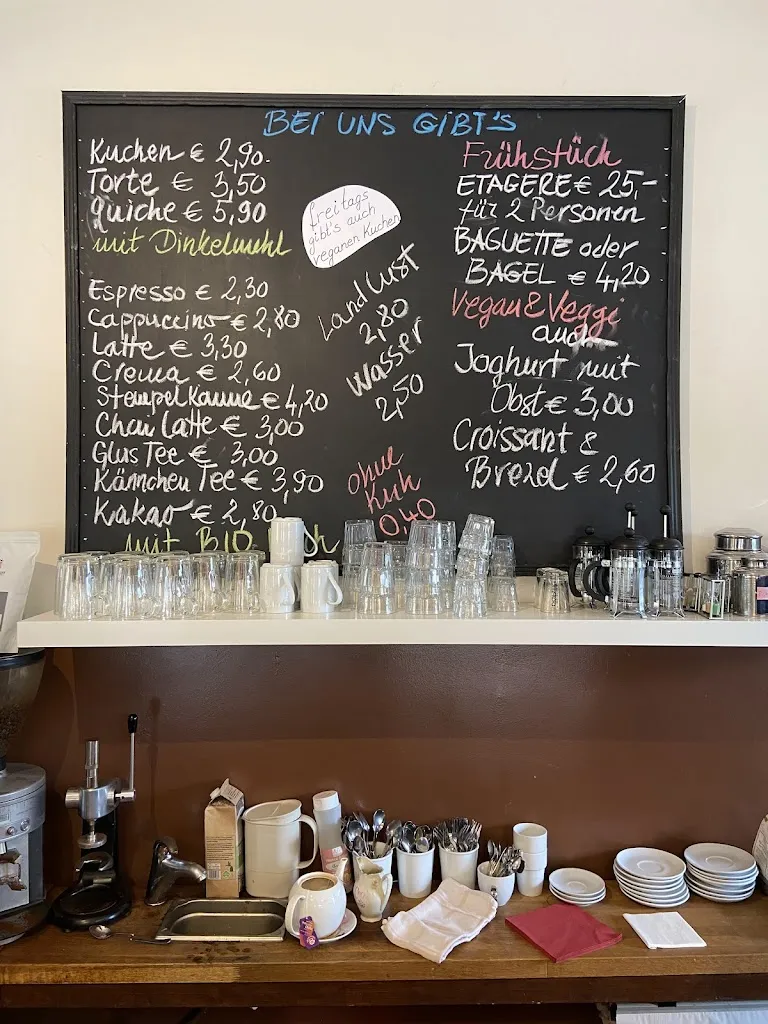 BEI UNS GIBT'S
Kuchen € 2,90.
Torte € 3,50
Quiche € 5,90
mit Dinkelmehl
Espresso € 2,30
Cappuccino € 2,80
Latte € 3,30
Crema € 2,60
Stempelkanne € 4,20
Chai Latte € 3,00
Glas Tee € 3,00
Kännchen Tee € 3,90
Kakao € 2,80
mit BIO
freitags
gibt's auch
veganen Kuchen
Landlust
2,80
Wasser
2,50
ohne
Kuh
0,40
Frühstück
ETAGERE € 25,-
für 2 Personen
BAGUETTE oder
BAGEL € 4,20
Vegan & Veggi
auch
Joghurt mit
Obst € 3,00
Croissant &
Brezel € 2,60